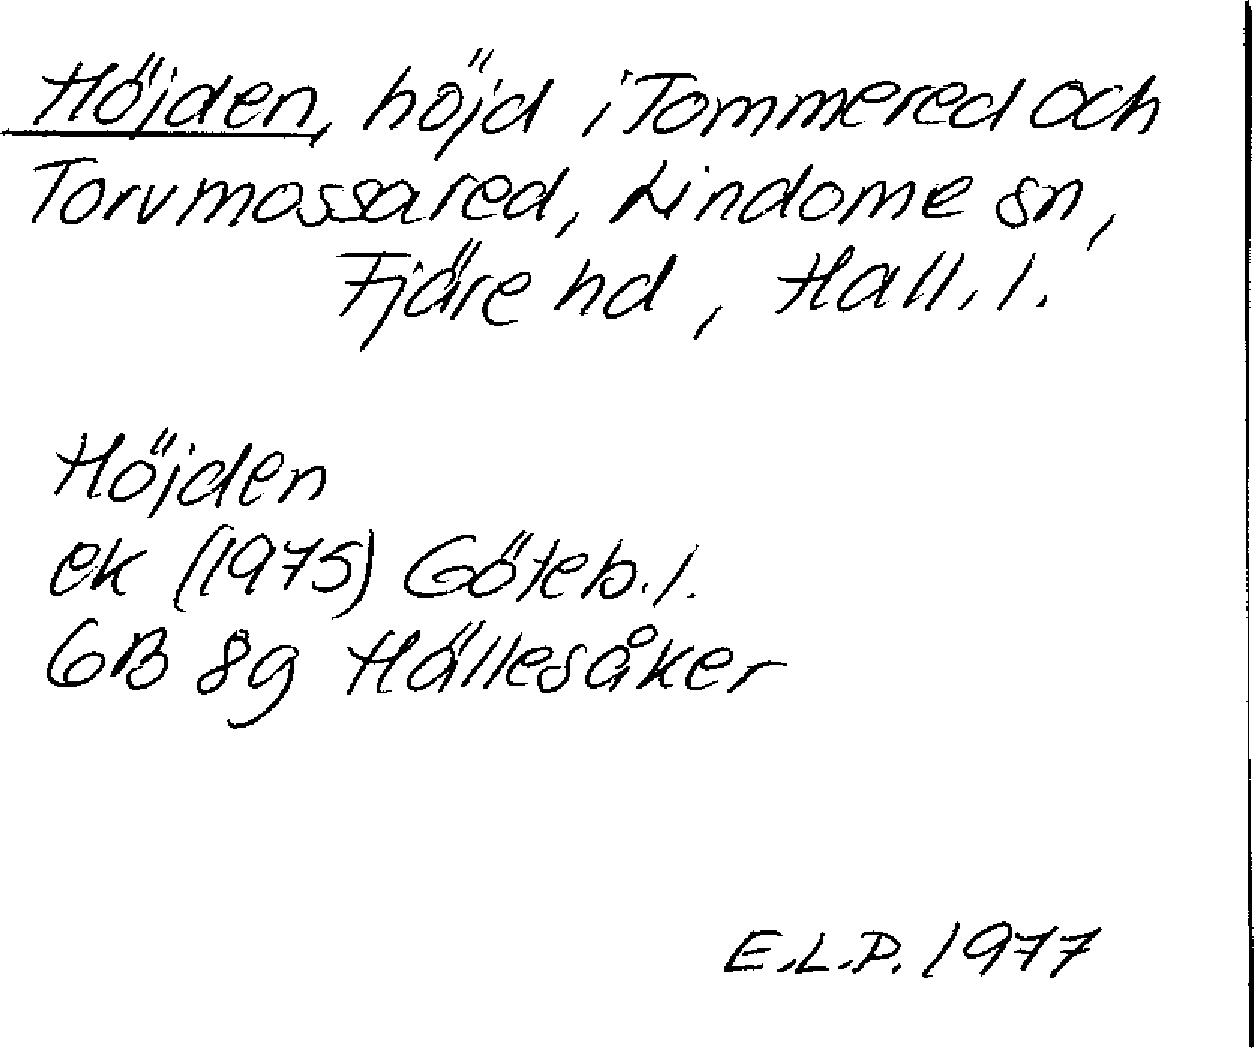 Höjden, höjd i Tommered och
Torvmossared, Lindome sn,
Fjäre hd, Hall. l.
Höjden
ek (1975) Göteb. l.
6B 8g Hällesåker
E.L.P. 1977